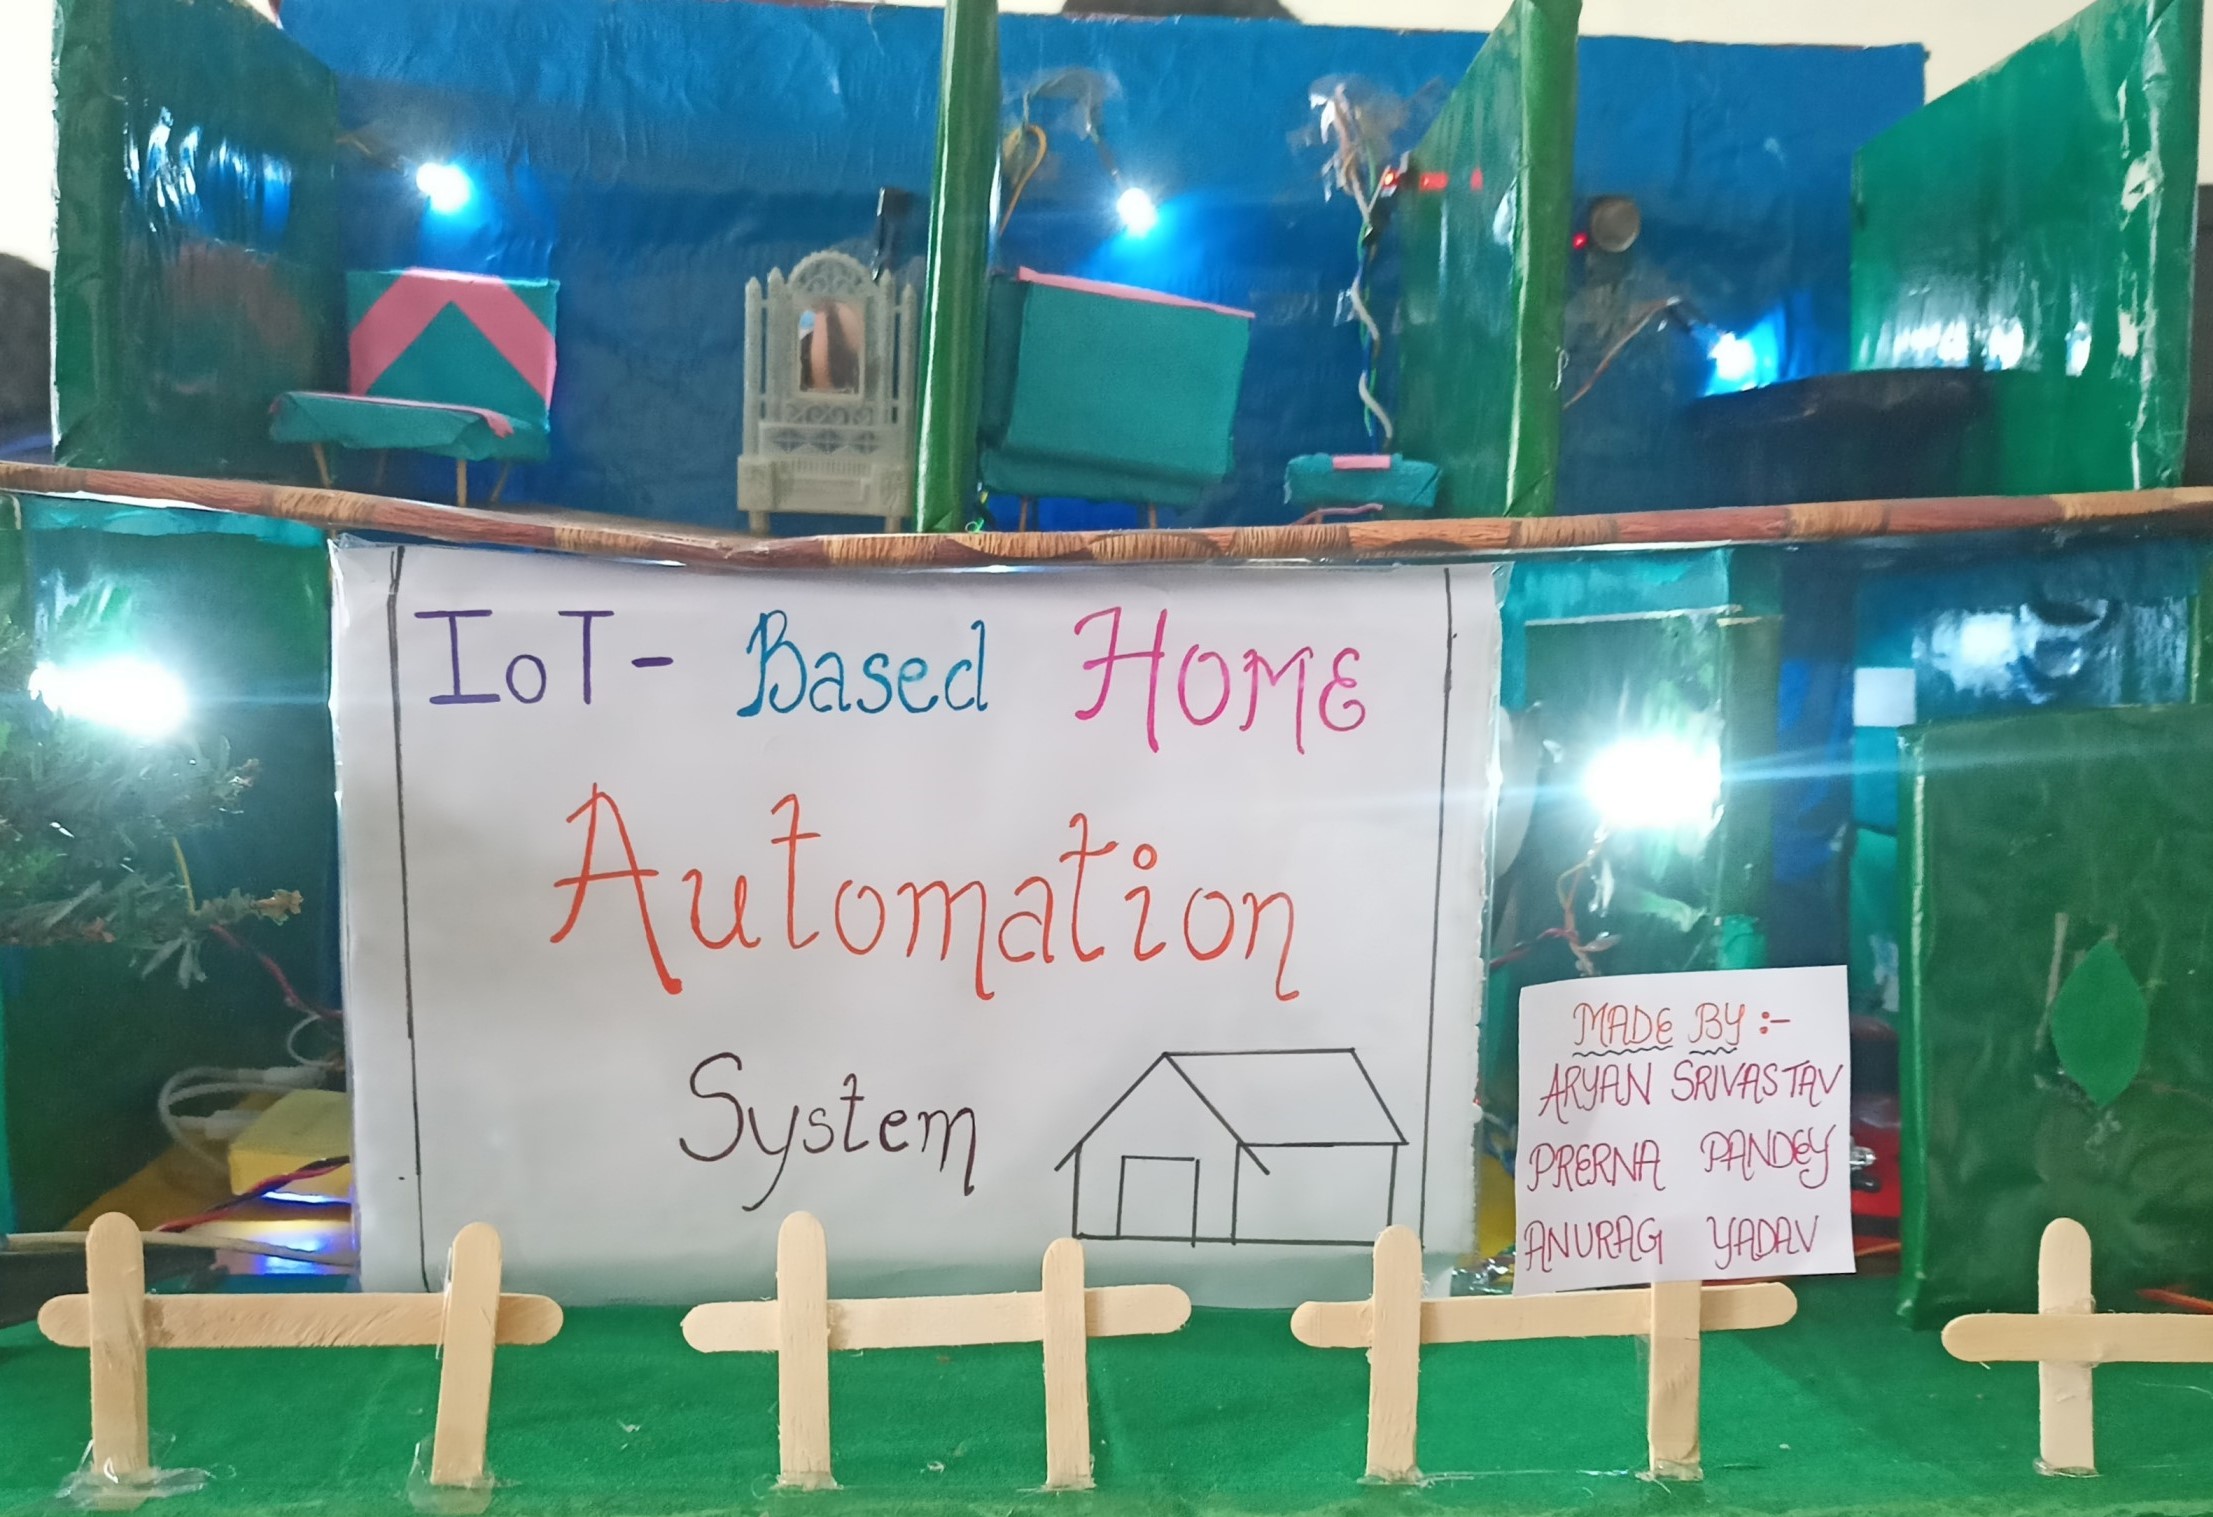 IoT- Based HOME
Automation
System
MADE BY :-
ARYAN SRIVASTAV
PRERNA PANDEY
ANURAG YADAV